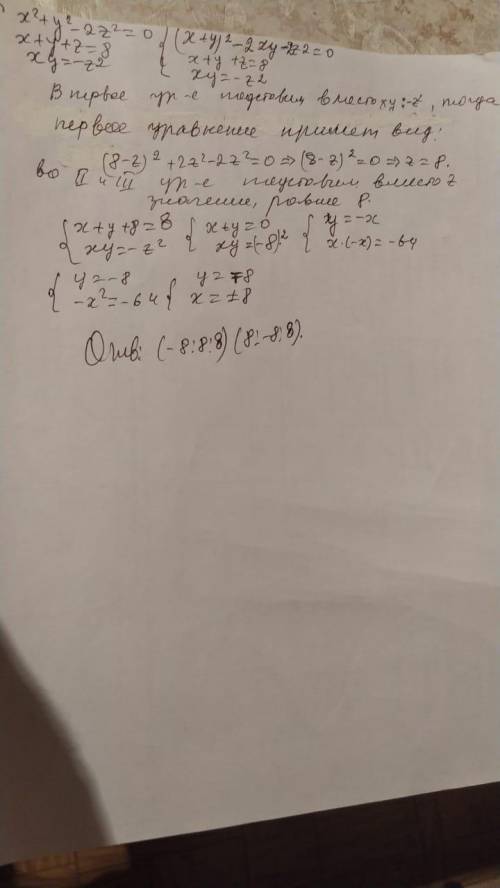 x²+y²-2z²=0 { (x+y)²-2xy-2z2=0
x+y+z=8 x+y+z=8
xy=-z2 xy=-z2
В первое ур-е подставим вместо xy:-z, тогда
первое уравнение примет вид:
(8-z)²+2z²-2z²=0⇒(8-z)²=0⇒z=8.
во II и III ур-е подставим вместо z
значение, равное 8.
{ x+y+8=8 { x+y=0 { y=-x
xy=-z² xy=(-8)² x·(-x)=-64
{ y=-8 { y=∓8
-x²=-64 x=±8
Отв: (-8;8;8) (8;-8;8).